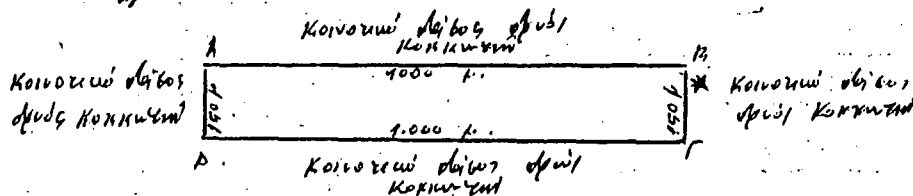 Κοινοτικό δάσος δρυός
Κοκκωτού
Α
Β
1000 μ.
Κοινοτικό δάσος
δρυός Κοκκωτού
150 μ
150 μ
Κοινοτικό δάσος
δρυός Κοκκωτού
1.000 μ.
Δ
Γ
Κοινοτικό δάσος δρυός
Κοκκωτού